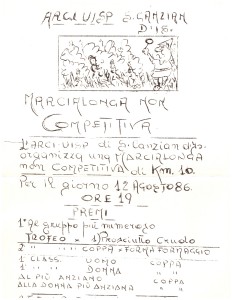 ARCI UISP S. LANZIAN
D'IS.
MARCIALONGA NON
COMPETITIVA
L'ARCI-UISP di S. Lanzian d'Is.
organizza una MARCIALONGA
non COMPETITIVA di Km. 10
Per il giorno 12 AGOSTO 86.
ORE 19
PREMI
1° gruppo più numeroso
TROFEO + 1 Prosciutto Crudo
2 " " " COPPA + FORMA FORMAGGIO
1° CLASS. UOMO COPPA
1° " DONNA "
AL PIÙ ANZIANO COPPA
ALLA DONNA PIÙ ANZIANA "